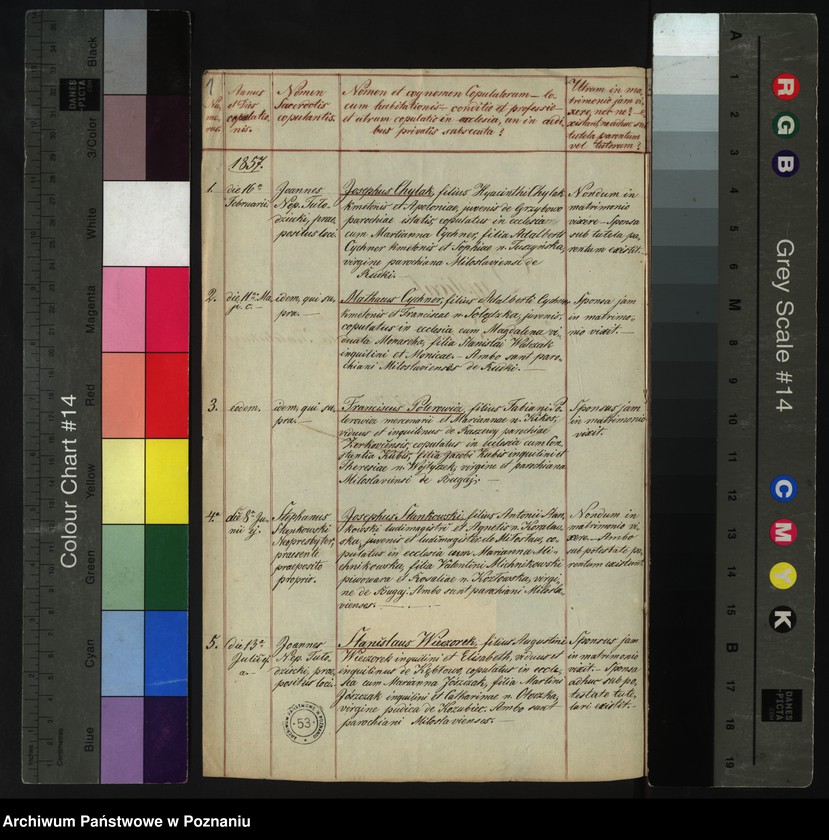 Annus et Dies copulationis.
Nomen Sacerdotis copulantis.
Nomen et cognomen Copulatorum – locum habitationis – conditio et professio – et utrum copulatio in ecclesia, an in aedibus privatis subsecuta?
Utrum in matrimonio jam
tutela parentum vel tutorum?
1857.
1. die 16ª Februarii.
Joannes Nep. Tuło-
dziecki, prae-
positus loci.
Josephus Chylak, filius Hyacinthi Chylak
kmetonis et Apoloniae, juvenis de Grzybowo
parochiae istatis, copulatus in ecclesia
cum Marianna Cychner, filia Adalberti
Cychner kmetonis et Sophiae n. Tuszyńska,
virgine parochiana Miloslaviensi de
Ruśki.
Nondum in
matrimonio
vixere – Sponsa
sub tutela pa-
rentum existit.
2.
idem, qui su-
pra.
Mathaeus Cychner, filius Adalberti Cychner
kmetonis et Franciscae n. juvenis
copulatus in ecclesia cum Magdalena vi-
duata Monarcha, filia Stanislai Walczak
inquilini et Monicae. – Ambo sunt paro-
chiani Miloslavienses de Ruśki. –
Sponsa jam
in matrimo-
nio vixit. –
3. eodem.
idem, qui su-
pra. –
Franciscus Polerowicz, filius Fabiani Po-
lerowicz mercenarii et Mariannae n. Kikos,
viduus et inquilinus de Raszewy parochiae
Zerkoviensis, copulatus in ecclesia cum Con-
stantia Kubis, filia Jacobi Kubis inquilini et
Theresiae n. Wojtyszek, virgine et parochiana
Miloslaviensi de Bugaj. –
Sponsus jam
in matrimonio
vixit. –
4. die 8ª Ju-
nii
Stephanus
Stankowski
Neopresbyter,
praesente
praeposito
proprio.
Josephus Stankowski, filius Antonii Stan-
kowski ludimagistri et Agnetis n.
juvenis et ludimagister de Milosław, co-
pulatus in ecclesia cum Marianna Mi-
chnikowska, filia Valentini Michnikowski
piwowara et Rosaliae n. Kozłowska, virgi-
ne de Bugaj. Ambo sunt parochiani Milosla-
vienses. –
Nondum in
matrimonio vi-
xere. – Ambo
sub potestate pa-
rentum existunt.
5. die 13ª
Julii
Joannes
Nep. Tuło-
dziecki, prae-
positus loci.
Stanislaus Wieczorek, filius Augustini
Wieczorek inquilini et Elisabeth, viduus et
inquilinus de Kębłowo copulatus in eccle-
sia cum Marianna Jószczak, filia Martini
Jószczak inquilini et Catharinae n.
virgine pudica de Kozubiec. Ambo sunt
parochiani Miloslavienses. –
Sponsus jam
in matrimonio
vixit. – Sponsa
adhuc sub po-
testate tute-
lari existit. –
53
Colour Chart #14
Blue
Cyan
Green
Yellow
Red
Magenta
White
3/Color
Black
Inches
Centimetres
DANES
PICTA
.COM
Grey Scale #14
A
1
2
3
4
5
6
M
8
9
10
11
12
13
14
15
B
17
18
19
R
G
B
C
M
Y
K
DANES
PICTA
.COM
Archiwum Państwowe w Poznaniu